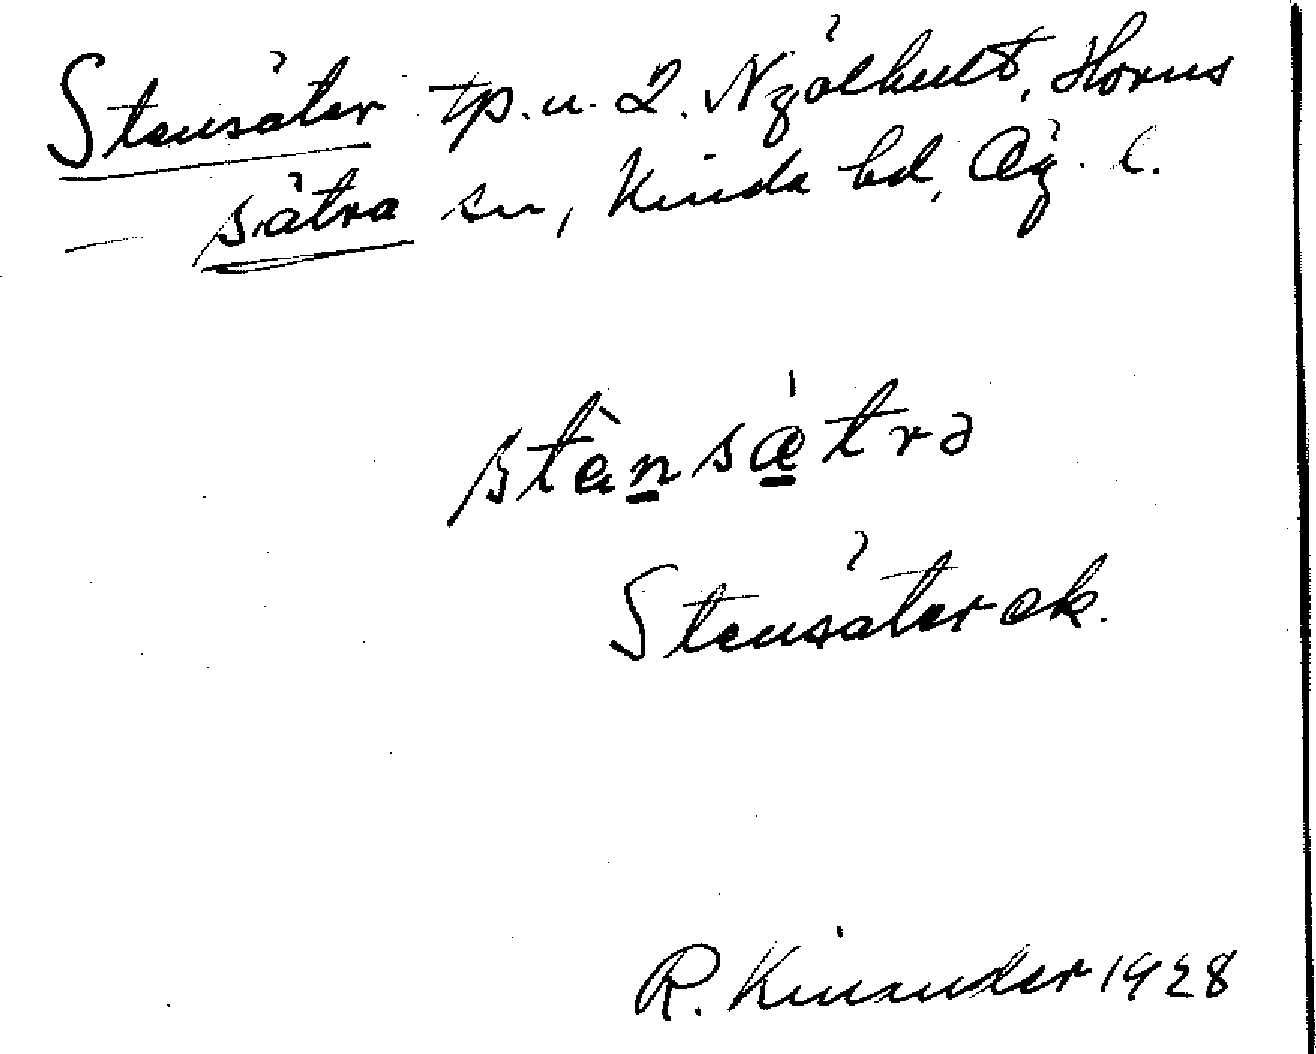 Stensäter tp. u. 2. Nyölhult, Horns
— sätra sn, Kinda hd, Ög. l.
stènsǽtrə
Stensäter ek.
R. Kinander 1928